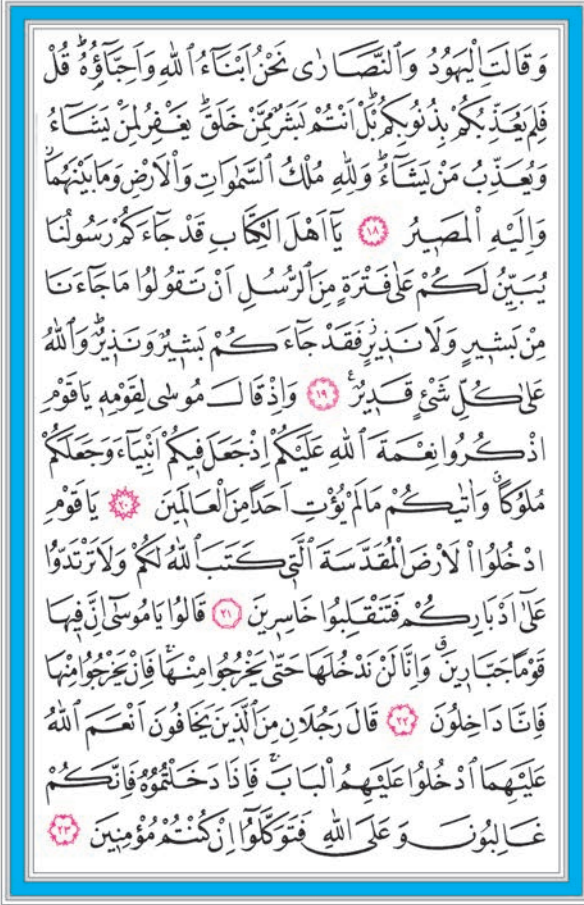 وَقَالَتِ الْيَهُودُ وَالنَّصَارٰى نَحْنُ اَبْنَاءُ اللّٰهِ وَاَحِبَّاؤُهُۜ قُلْ
فَلِمَ يُعَذِّبُكُمْ بِذُنُوبِكُمْۜ بَلْ اَنْتُمْ بَشَرٌ مِمَّنْ خَلَقَۜ يَغْفِرُ لِمَنْ يَشَاءُ
وَيُعَذِّبُ مَنْ يَشَاءُۜ وَلِلّٰهِ مُلْكُ السَّمٰوَاتِ وَالْاَرْضِ وَمَا بَيْنَهُمَاۘ
وَاِلَيْهِ الْمَصِيرُ ﴿١٨﴾ يَا اَهْلَ الْكِتَابِ قَدْ جَاءَكُمْ رَسُولُنَا
يُبَيِّنُ لَكُمْ عَلٰى فَتْرَةٍ مِنَ الرُّسُلِ اَنْ تَقُولُوا مَا جَاءَنَا
مِنْ بَشِيرٍ وَلَا نَذِيرٍۘ فَقَدْ جَاءَكُمْ بَشِيرٌ وَنَذِيرٌۜ وَاللّٰهُ
عَلٰى كُلِّ شَيْءٍ قَدِيرٌ۟ ﴿١٩﴾ وَاِذْ قَالَ مُوسٰى لِقَوْمِهِ يَا قَوْمِ
اذْكُرُوا نِعْمَةَ اللّٰهِ عَلَيْكُمْ اِذْ جَعَلَ فِيكُمْ اَنْبِيَاءَ وَجَعَلَكُمْ
مُلُوكاًۗ وَاٰتٰيكُمْ مَا لَمْ يُؤْتِ اَحَداً مِنَ الْعَالَمِينَ ﴿٢٠﴾ يَا قَوْمِ
ادْخُلُوا الْاَرْضَ الْمُقَدَّسَةَ الَّتِي كَتَبَ اللّٰهُ لَكُمْ وَلَا تَرْتَدُّوا
عَلٰى اَدْبَارِكُمْ فَتَنْقَلِبُوا خَاسِرِينَ ﴿٢١﴾ قَالُوا يَا مُوسٰى اِنَّ فِيهَا
قَوْماً جَبَّارِينَۗ وَاِنَّا لَنْ نَدْخُلَهَا حَتّٰى يَخْرُجُوا مِنْهَاۚ فَاِنْ يَخْرُجُوا مِنْهَا
فَاِنَّا دَاخِلُونَ ﴿٢٢﴾ قَالَ رَجُلَانِ مِنَ الَّذِينَ يَخَافُونَ اَنْعَمَ اللّٰهُ
عَلَيْهِمَا ادْخُلُوا عَلَيْهِمُ الْبَابَۚ فَاِذَا دَخَلْتُمُوهُ فَاِنَّكُمْ
غَالِبُونَ وَعَلَى اللّٰهِ فَتَوَكَّلُوا اِنْ كُنْتُمْ مُؤْمِنِينَ ﴿٢٣﴾